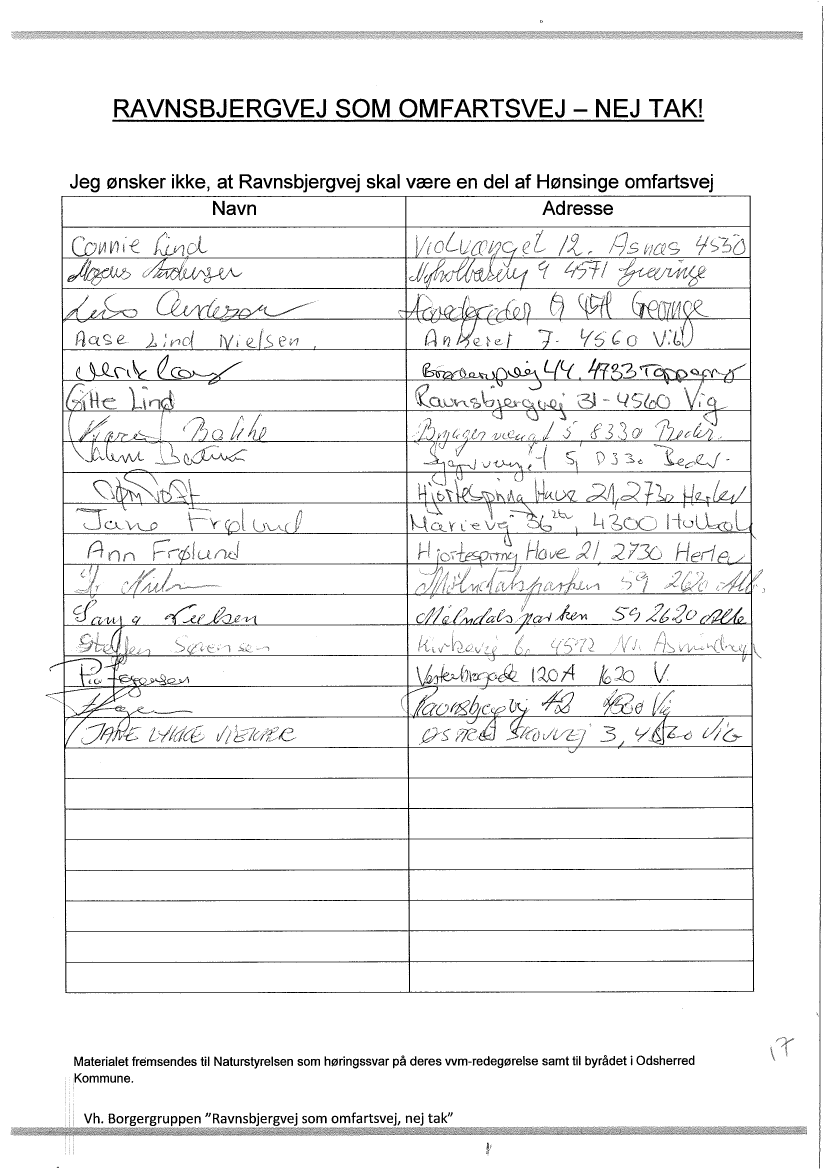 RAVNSBJERGVEJ SOM OMFARTSVEJ – NEJ TAK!
Jeg ønsker ikke, at Ravnsbjergvej skal være en del af Hønsinge omfartsvej
Navn Adresse
Connie Lind Violvænget 12. Asnæs 4550
Mogens Andersen 9 4571 Grevinge
Andersen 9 4571 Grevinge
Aase Lind Nielsen. Ankeret 7. 4560 Vib
Ulrik 44. 4733 Tappernø
Gitte Lind Ravnsbjergvej 31-4560 Vig
Bakke Bøgagervænget 5, 8330 Beder.
5, Beder
Hjortespring Have 21, 2730 Herlev
Jane Frølund Marievej 36, 4300 Holbæk
Ann Frølund Hjortespring Have 21, 2730 Herlev
Mölndalsparken 59 2620 Alb.
Sanja Nielsen Mölndalsparken 59 2620 Alb
Steffen Sørensen Kirkevej 6, 4572 Nr. Asmindrup
Pia Jørgensen Vesterbrogade 120A 1620 V.
Ravnsbjergvej 42 4560 Vig
JANE LYKKE ØSTRE SKOVVEJ 3, 4560 VIG
17
Materialet fremsendes til Naturstyrelsen som høringssvar på deres vvm-redegørelse samt til byrådet i Odsherred
Kommune.
Vh. Borgergruppen "Ravnsbjergvej som omfartsvej, nej tak"